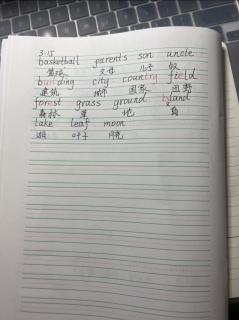 3.15
basketball parents son uncle
篮球 父母 儿子 叔
building city country field
建筑 城市 国家 田野
forest grass ground island
森林 草 地 岛
lake leaf moon
湖 叶子 月亮